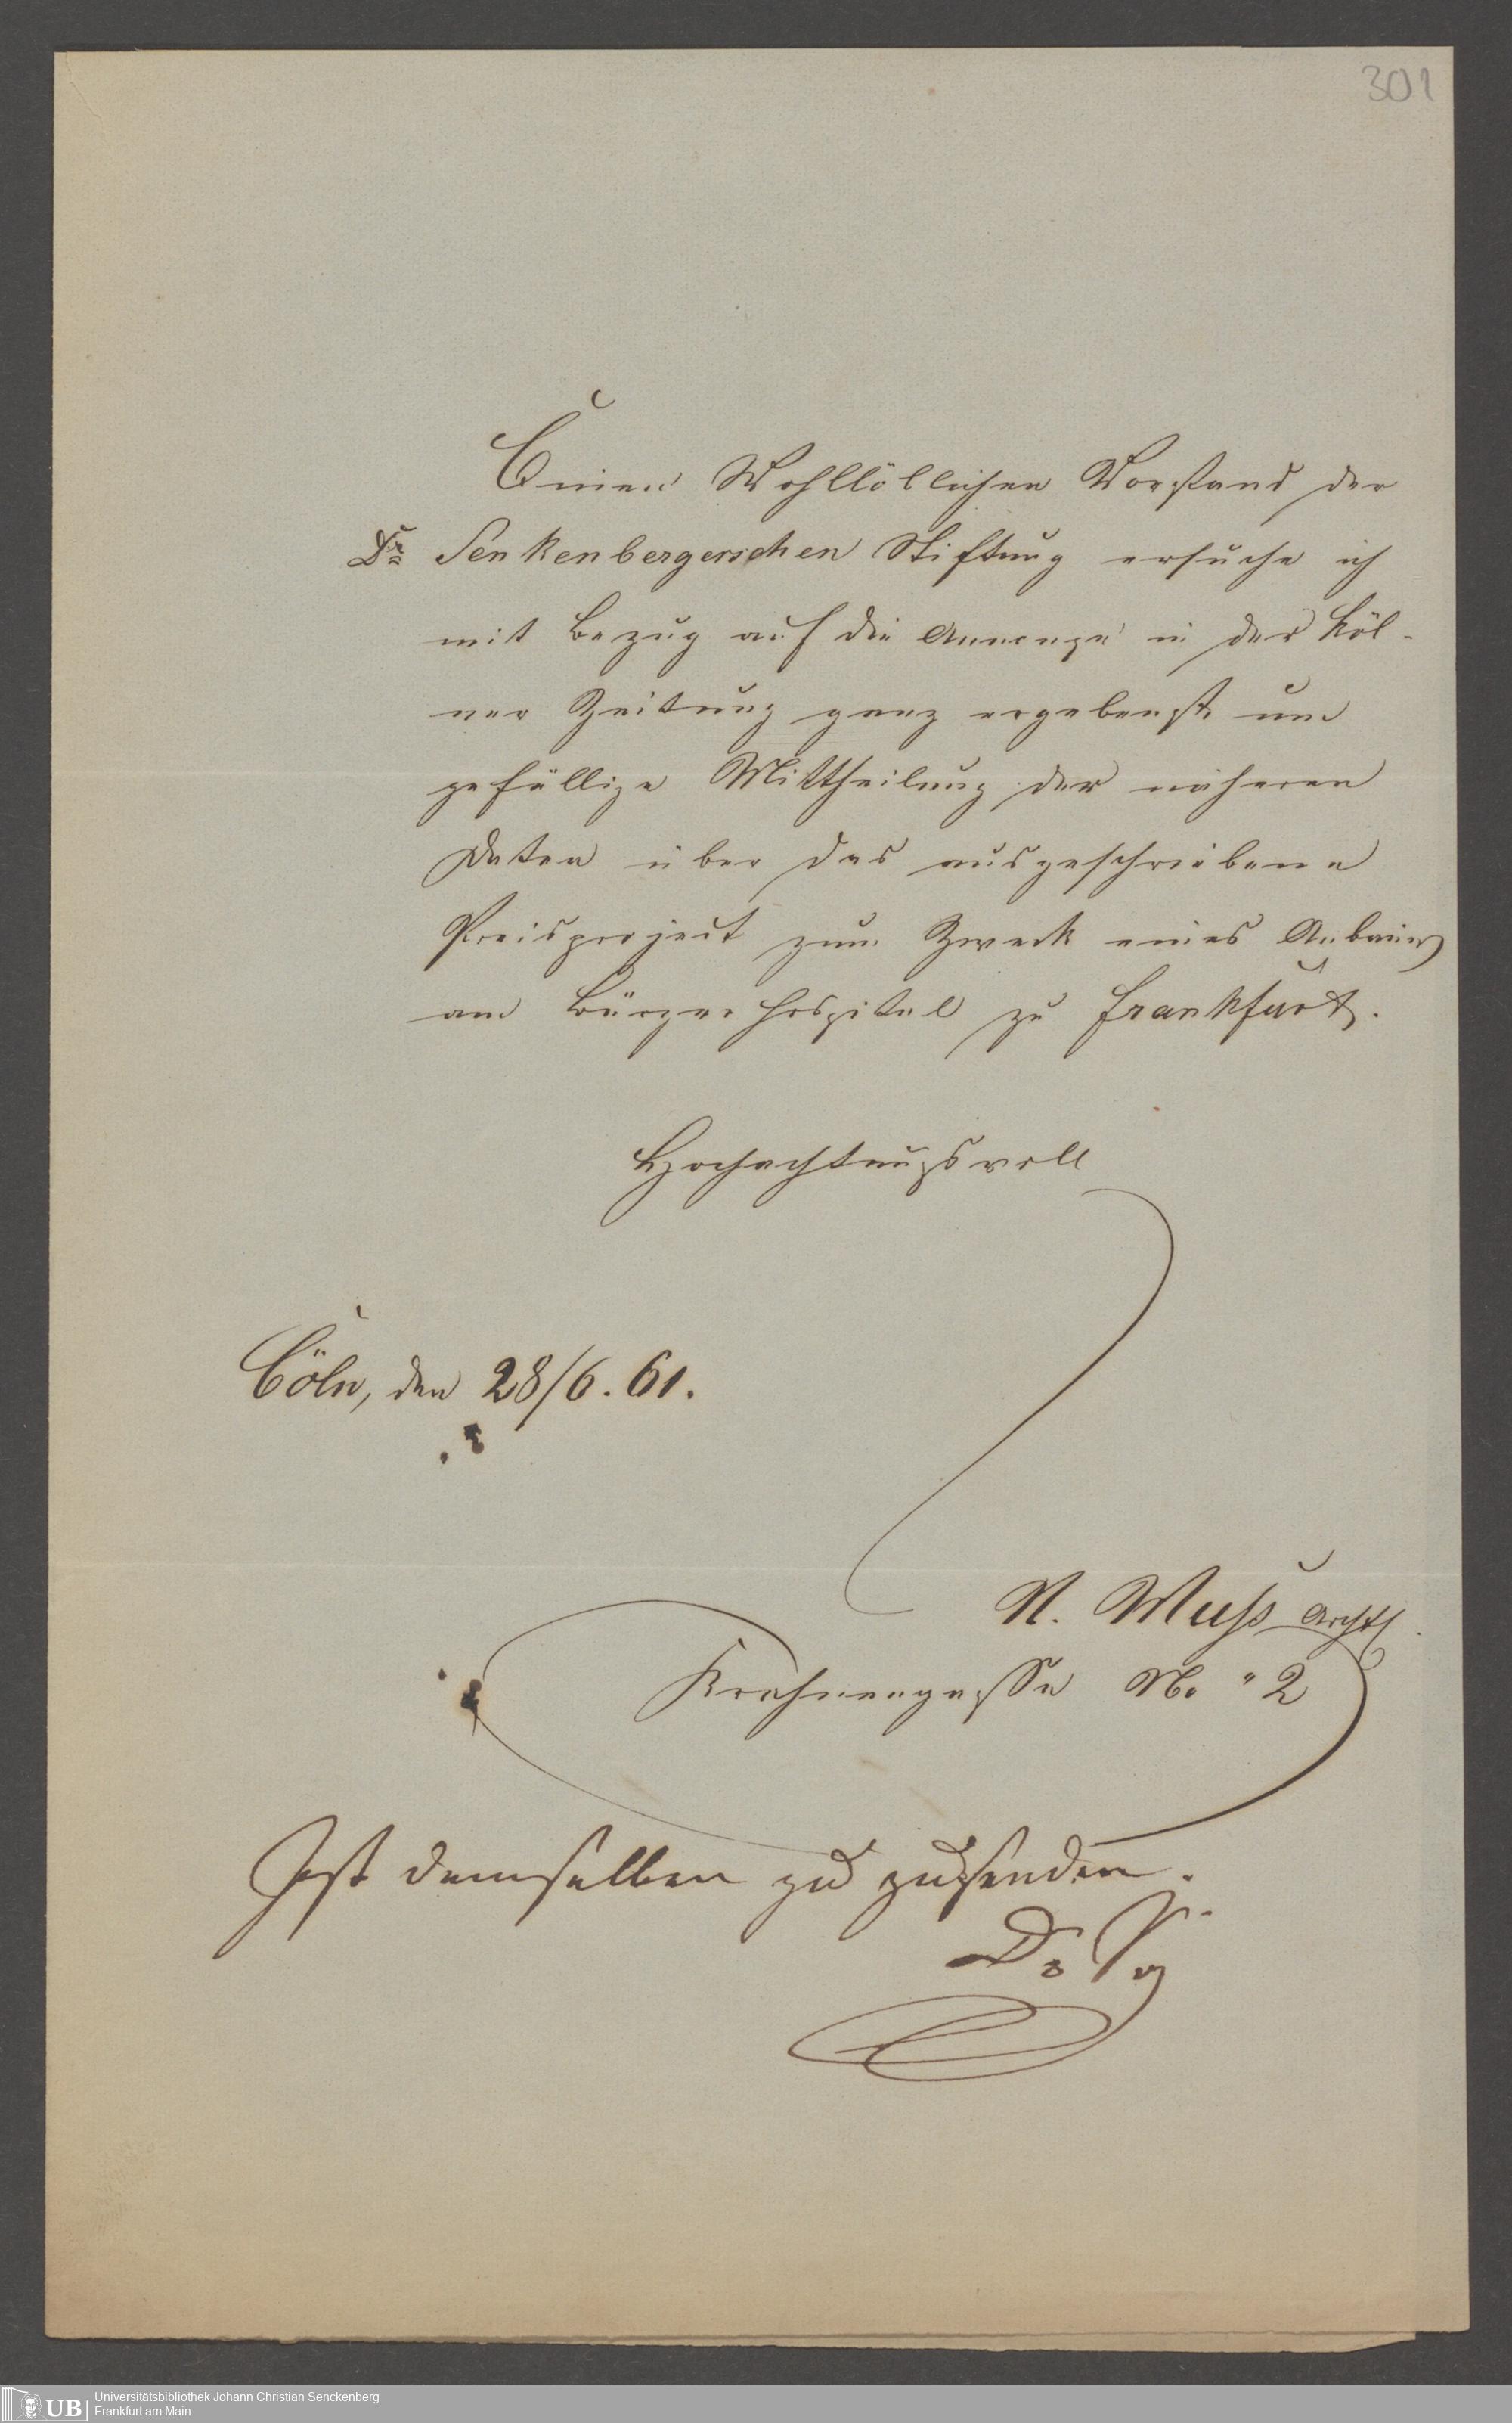 301
Einen Wohllöblichen Vorstand der
Dr Senkenbergerschen Stiftung ersuche ich
mit Bezug auf die Annonçe in der Köl-
ner Zeitung ganz ergebenst um
gefällige Mittheilung der näheren
Daten über das ausgeschriebene
Preisproject zum Zweck eines Anbaues
am Bürgerhospital zu Frankfurt.
Hochachtungsvoll
Cöln, den 28/6. 61.
N. Muhs Archt.
Krahnengasse No. "2
Ist demselben zu zusenden.
Dr
UB
Universitätsbibliothek Johann Christian Senckenberg
Frankfurt am Main